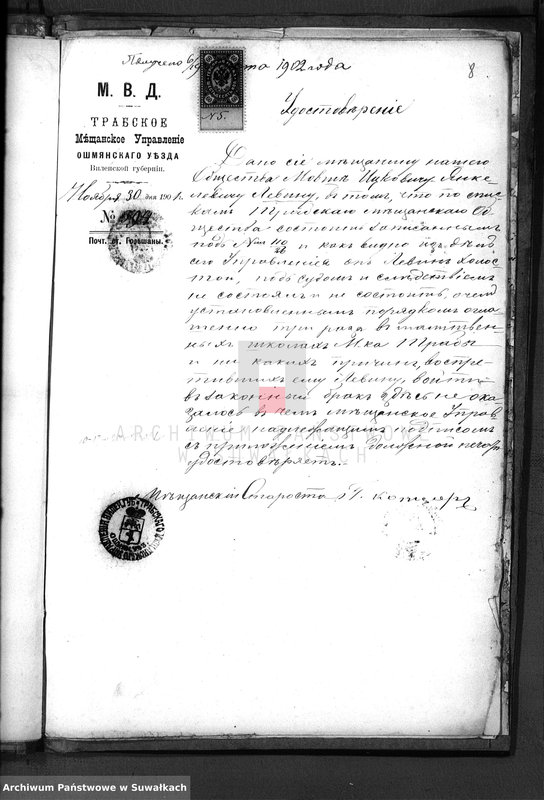 1902 года
8
М. В. Д.
ТРАБСКОЕ
Мѣщанское Управленіе
ОШМЯНСКАГО УѢЗДА
Виленской губерніи.
Ноября 30 дня 190
№
Почт. ст. Гольшаны.
№ 5.
Удостовѣреніе
Дано сіе мѣщанину нашего
Общества Янке-
левичу Левину, въ томъ, что по спис-
камъ Трабскаго мѣщанскаго Об-
щества состоитъ записаннымъ
подъ № и какъ видно изъ дѣлъ
сего Управленія онъ Левинъ холос-
той, подъ судомъ и слѣдствіемъ
не состоялъ и не состоитъ, о чемъ
установленнымъ порядкомъ огла-
шенно три раза въ молитвен-
ныхъ школахъ М-ка Трабы
и ни какихъ причинъ, воспре-
тившихъ ему Левину, войти
въ законный бракъ здѣсь не ока-
залось въ чемъ мѣщанское Упра-
вленіе надлежащимъ подписомъ
съ приложеніемъ должной печати
удостовѣряетъ.
Мѣщанскій Староста
ARCHIWUM PAŃSTWOWE
W SUWAŁKACH
Archiwum Państwowe w Suwałkach